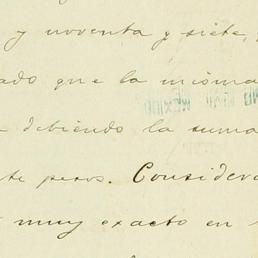 y noventa y siete,
ado que la misma
debiendo la suma
te pesos. Consider
muy exacto en